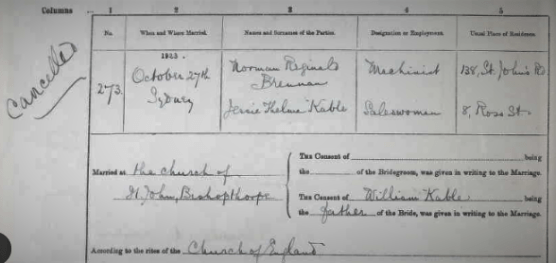 Columns 1 2 3 4 5
No. When and Where Married. Names and Surnames of the Parties. Designation or Employment. Usual Place of Residence.
Cancelled
1925.
273. October 27th Sydney
Norman Reginald Brennan Machinist 138, St John's Rd
Jessie Thelma Kable Saleswoman 8, Ross St
Married at the Church of
St John, Bishopthorpe
The Consent of being
the of the Bridegroom, was given in writing to the Marriage.
The Consent of William Kable being
the father of the Bride, was given in writing to the Marriage.
According to the rites of the Church of England